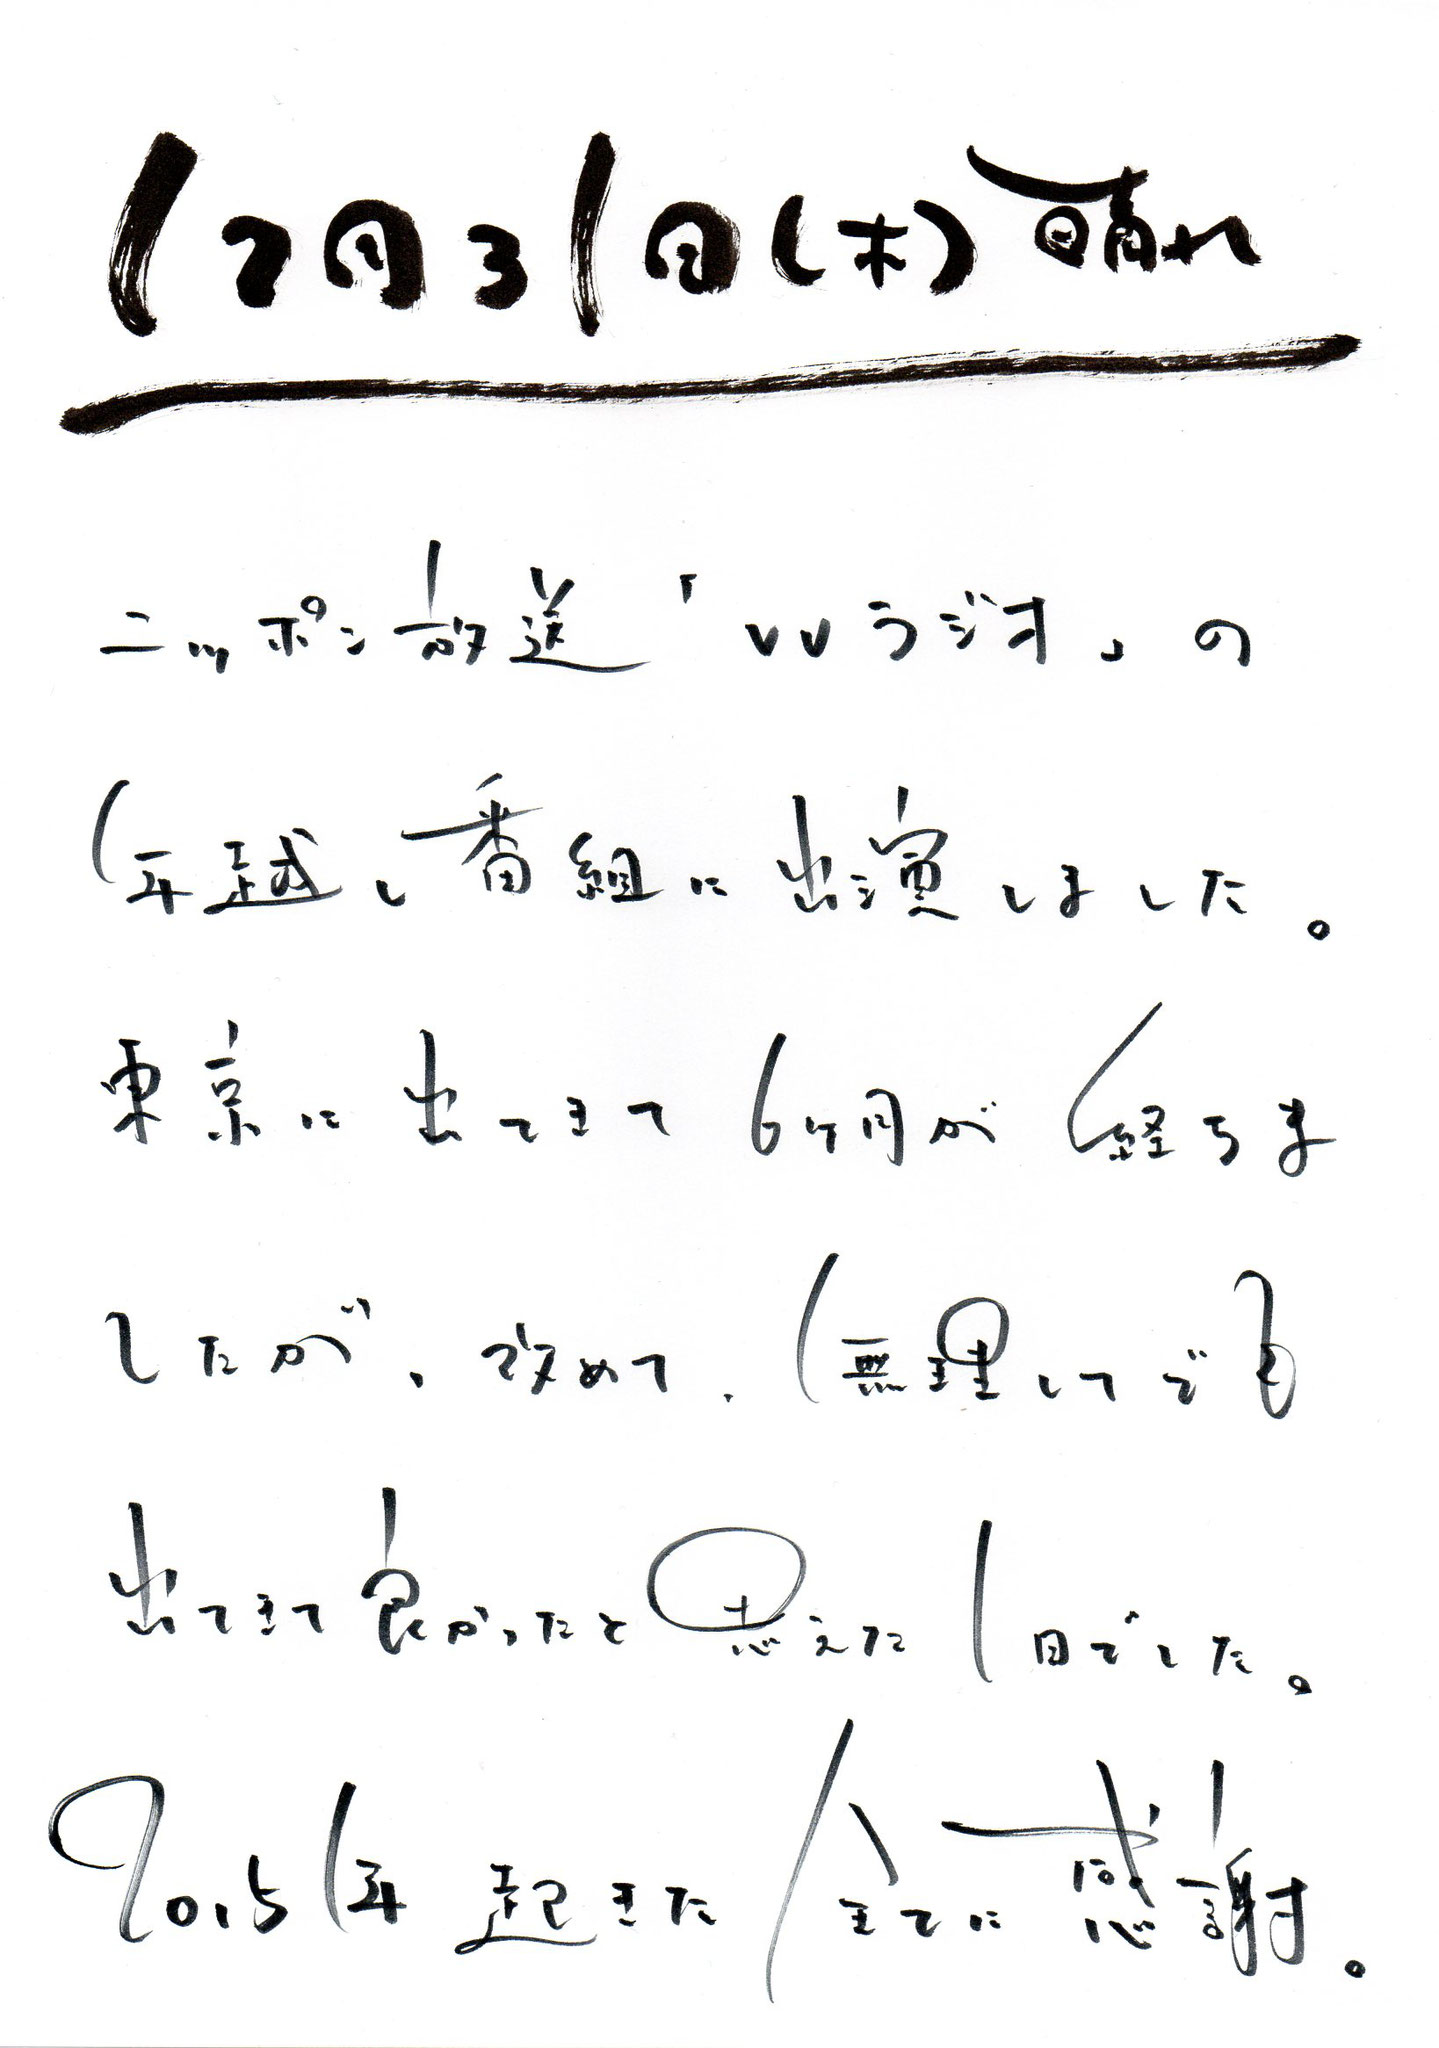 12月31日(木)晴れ
ニッポン放送「VVラジオ」の
年越し番組に出演しました。
東京に出てきて6ヶ月が経ちま
したが、改めて、無理してでも
出てきて良かったと思えた1日でした。
2015年起きた全てに感謝。